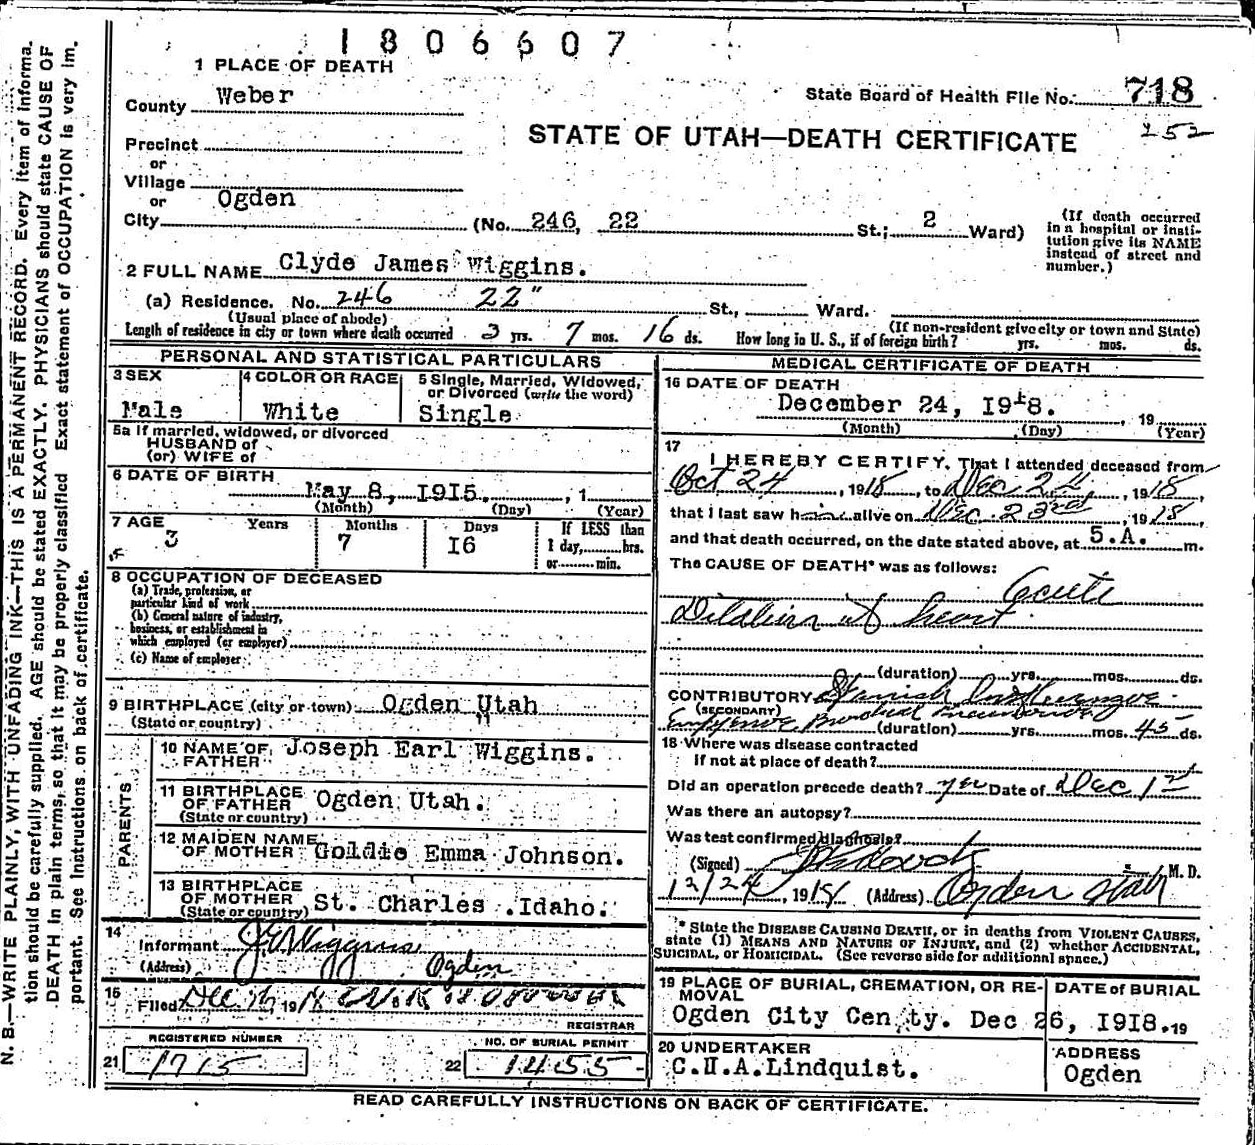 1806607
1 PLACE OF DEATH
County Weber
State Board of Health File No. 718
252
STATE OF UTAH—DEATH CERTIFICATE
Precinct
or
Village
or
City Ogden (No. 246, 22 St.; 2 Ward)
(If death occurred in a hospital or institution give its NAME instead of street and number.)
2 FULL NAME Clyde James Wiggins.
(a) Residence. No. 246 22" St., Ward.
(Usual place of abode) (If non-resident give city or town and State)
Length of residence in city or town where death occurred 3 yrs. 7 mos. 16 ds. How long in U. S., if of foreign birth? yrs. mos. ds.
PERSONAL AND STATISTICAL PARTICULARS
3 SEX
Male
4 COLOR OR RACE
White
5 Single, Married, Widowed, or Divorced (write the word)
Single
5a If married, widowed, or divorced
HUSBAND of
(or) WIFE of
6 DATE OF BIRTH
May 8, 1915. , 1
(Month) (Day) (Year)
7 AGE Years Months Days If LESS than
3 7 16 1 day, hrs.
or min.
8 OCCUPATION OF DECEASED
(a) Trade, profession, or
particular kind of work
(b) General nature of industry,
business, or establishment in
which employed (or employer)
(c) Name of employer
9 BIRTHPLACE (city or town) Ogden Utah
(State or country) "
PARENTS
10 NAME OF FATHER Joseph Earl Wiggins.
11 BIRTHPLACE OF FATHER Ogden Utah.
(State or country)
12 MAIDEN NAME OF MOTHER Goldie Emma Johnson.
13 BIRTHPLACE OF MOTHER St. Charles .Idaho.
(State or country)
14
Informant J E Wiggins
(Address) Ogden
15 Filed Dec 1918
REGISTRAR
REGISTERED NUMBER
21 1715
NO. OF BURIAL PERMIT
22 1455
MEDICAL CERTIFICATE OF DEATH
16 DATE OF DEATH
December 24, 1918. , 19
(Month) (Day) (Year)
17
I HEREBY CERTIFY, That I attended deceased from
Oct 24, 1918, to Dec 24, , 1918,
that I last saw him alive on Dec. 23rd, 1918,
and that death occurred, on the date stated above, at 5.A. m.
The CAUSE OF DEATH* was as follows:
Acute
Dilation of heart
(duration) yrs. mos. ds.
CONTRIBUTORY Spanish Influenza
(SECONDARY)
Empyema Bronchial Pneumonia (duration) yrs. mos. 45 ds.
18 Where was disease contracted
If not at place of death?
Did an operation precede death? yes Date of Dec 1st
Was there an autopsy?
Was test confirmed diagnosis?
(Signed) M. D.
12/24, 1918 (Address) Ogden Utah
* State the DISEASE CAUSING DEATH, or in deaths from VIOLENT CAUSES,
state (1) MEANS AND NATURE OF INJURY, and (2) whether ACCIDENTAL,
SUICIDAL, or HOMICIDAL. (See reverse side for additional space.)
19 PLACE OF BURIAL, CREMATION, OR REMOVAL DATE OF BURIAL
Ogden City Cem,ty. Dec 26, 1918. 19
20 UNDERTAKER ADDRESS
C.H.A.Lindquist. Ogden
READ CAREFULLY INSTRUCTIONS ON BACK OF CERTIFICATE.
N. B.—WRITE PLAINLY, WITH UNFADING INK—THIS IS A PERMANENT RECORD. Every item of informa-
tion should be carefully supplied. AGE should be stated EXACTLY. PHYSICIANS should state CAUSE OF
DEATH in plain terms, so that it may be properly classified Exact statement of OCCUPATION is very im-
portant. See Instructions on back of certificate.